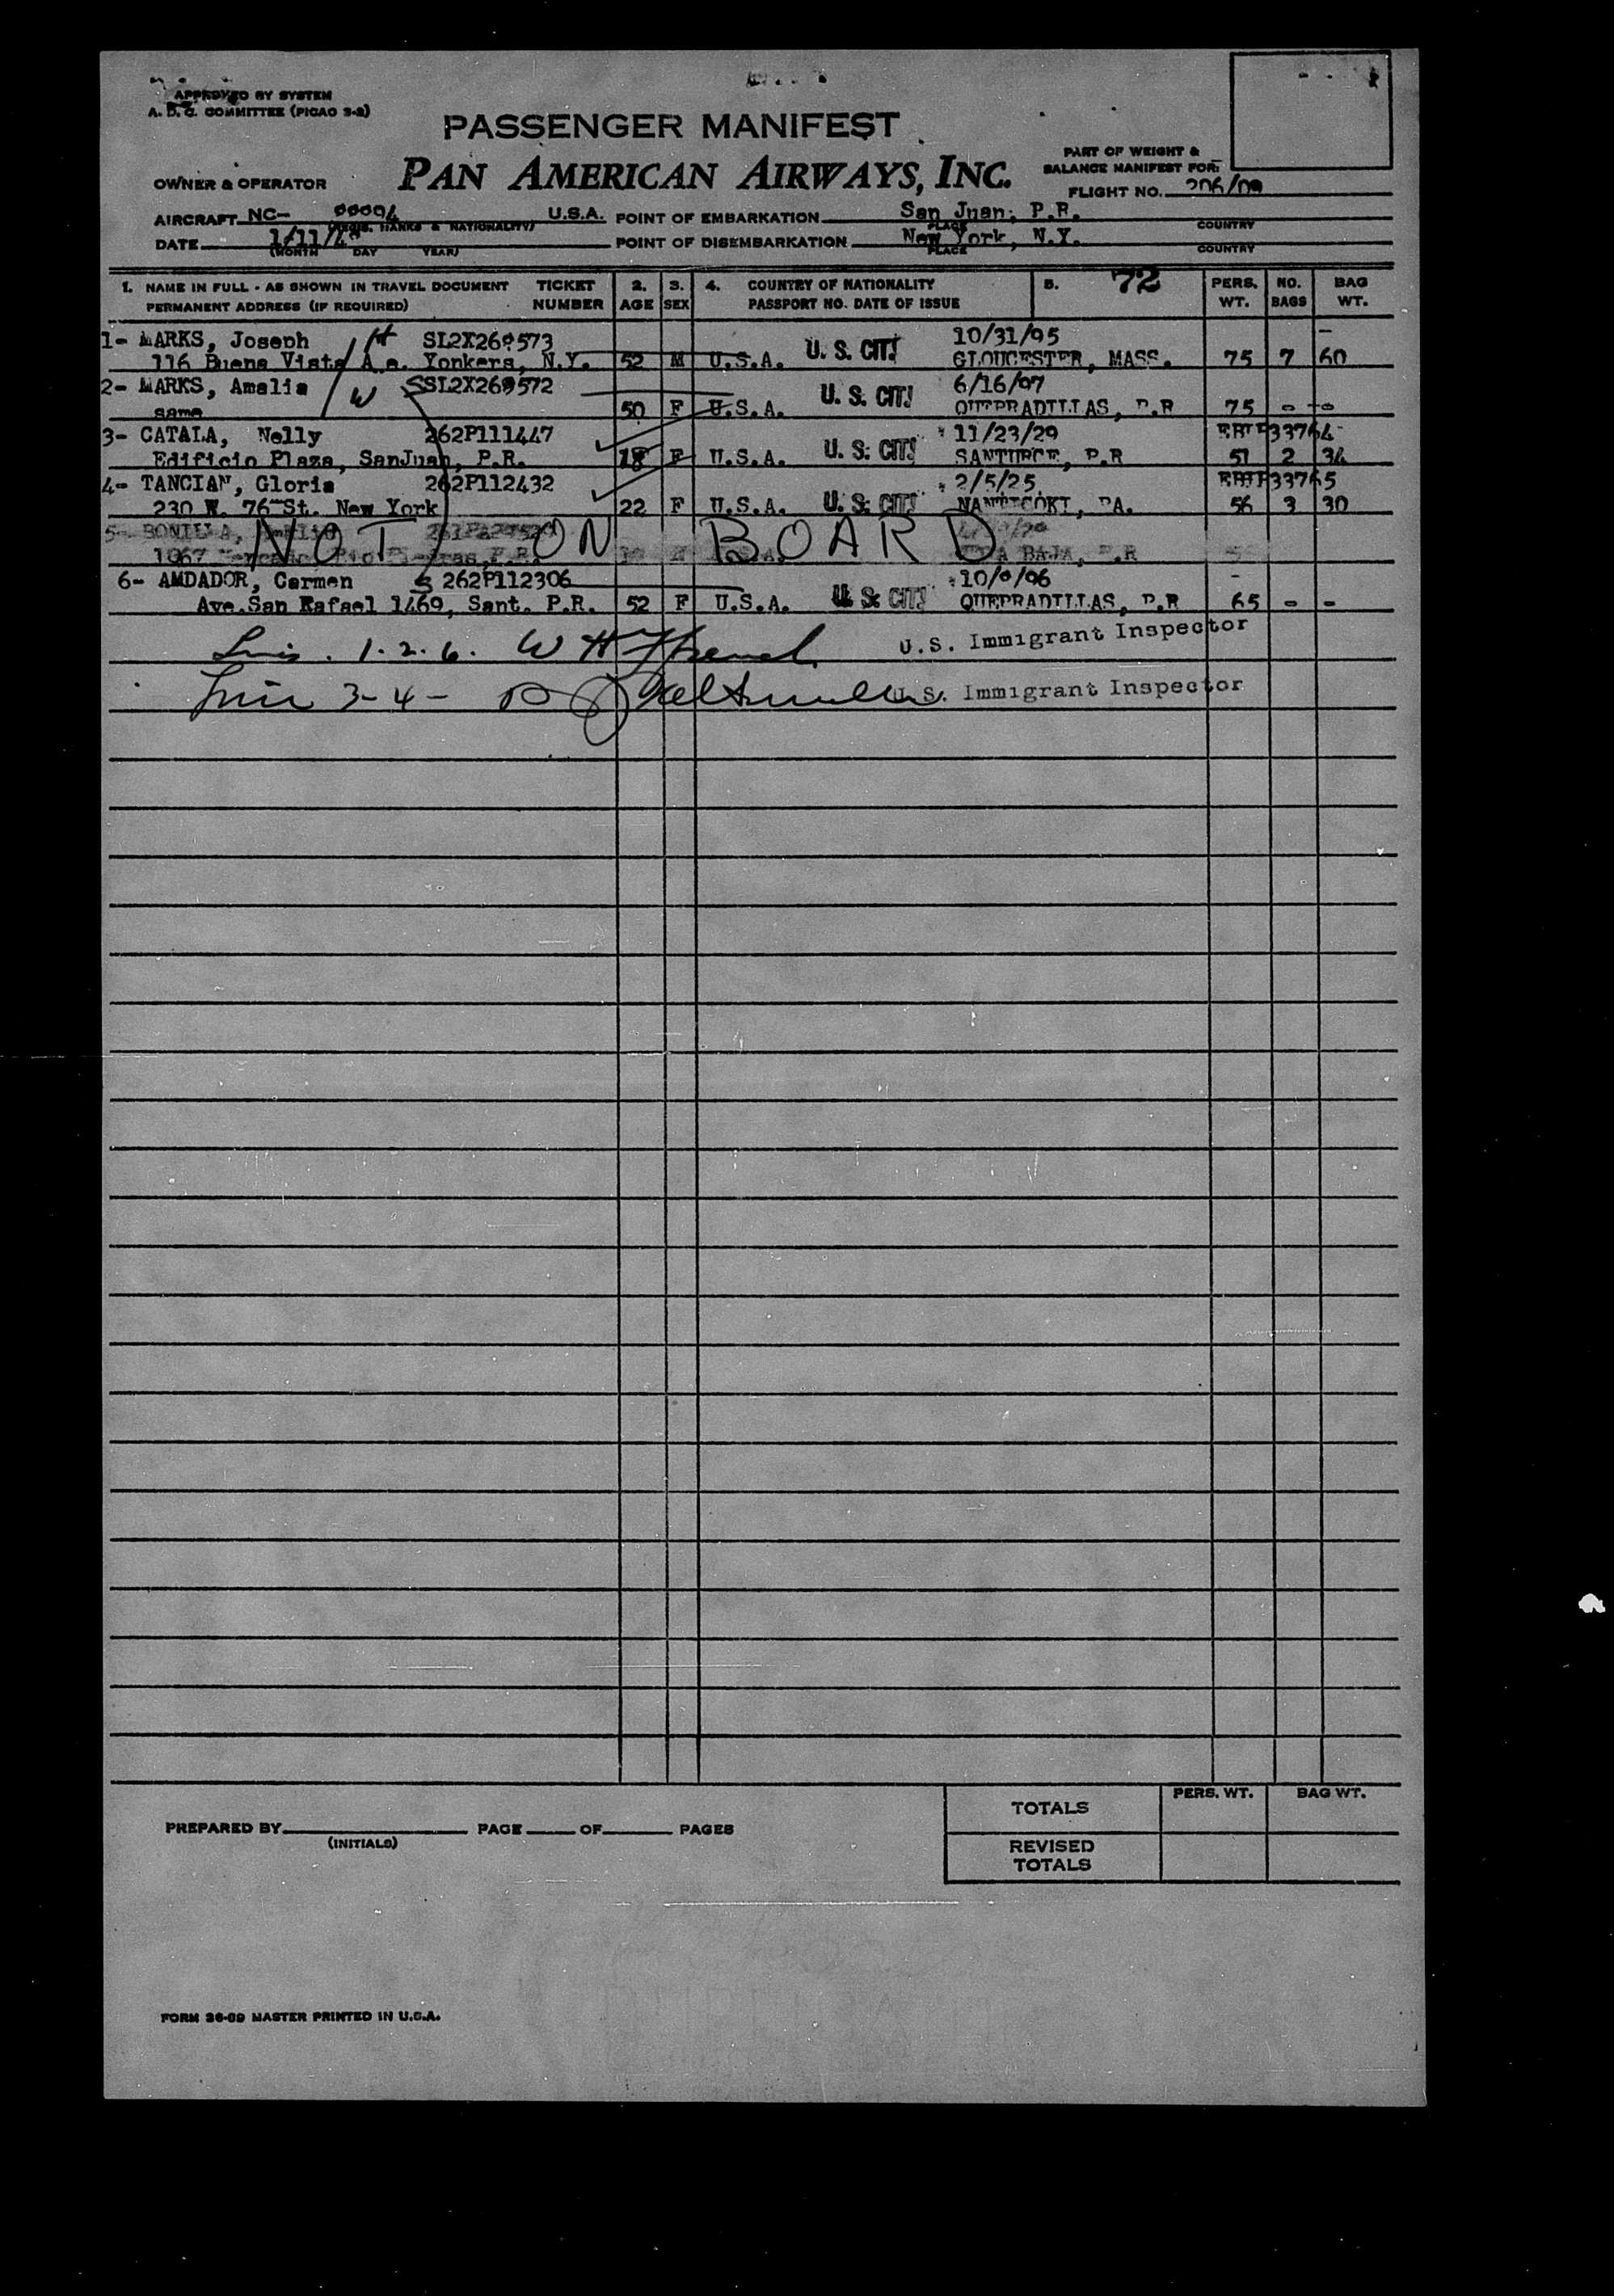 APPROVED BY SYSTEM
A. D. C. COMMITTEE (PICAO 3-2)
PASSENGER MANIFEST
PAN AMERICAN AIRWAYS, INC.
OWNER & OPERATOR
PART OF WEIGHT &
BALANCE MANIFEST FOR:
FLIGHT NO. 206/09
AIRCRAFT NC- U.S.A. POINT OF EMBARKATION San Juan, P.R.
(REGIS. MARKS & NATIONALITY) PLACE COUNTRY
DATE 1/11/48 POINT OF DISEMBARKATION New York, N.Y.
(MONTH DAY YEAR) PLACE COUNTRY
1. NAME IN FULL - AS SHOWN IN TRAVEL DOCUMENT TICKET 2. 3. 4. COUNTRY OF NATIONALITY 5. 72 PERS. NO. BAG
PERMANENT ADDRESS (IF REQUIRED) NUMBER AGE SEX PASSPORT NO. DATE OF ISSUE WT. BAGS WT.
1- MARKS, Joseph H SL2X269573 U. S. CIT. 10/31/95 -
116 Buena Vista Ave. Yonkers, N.Y. 52 M U.S.A. GLOUCESTER, MASS. 75 7 60
2- MARKS, Amalia W S SL2X269572 U. S. CIT. 6/16/97
same 50 F U.S.A. QUEBRADILLAS, P.R 75 - -
3- CATALA, Nelly 262P111447 U. S. CIT. 11/23/29 EBTP33764
Edificio Plaza, SanJuan, P.R. 18 F U.S.A. SANTURCE, P.R 51 2 34
4- TANCIAN, Gloria 262P112432 U. S. CIT. 2/5/25 EBTP33765
230 W. 76 St. New York 22 F U.S.A. NANTICOKE, PA. 56 3 30
5- BONILLA,
NOT ON BOARD
1067 P.R. BAJA, P.R
6- AMDADOR, Carmen S 262P112306 U. S. CIT. 10/9/96 -
Ave. San Rafael 1469, Sant. P.R. 52 F U.S.A. QUEBRADILLAS, P.R 65 - -
1. 2. 6. W H French U.S. Immigrant Inspector
3-4- U.S. Immigrant Inspector
TOTALS PERS. WT. BAG WT.
PREPARED BY PAGE OF PAGES
(INITIALS)
REVISED
TOTALS
FORM 36-09 MASTER PRINTED IN U.S.A.